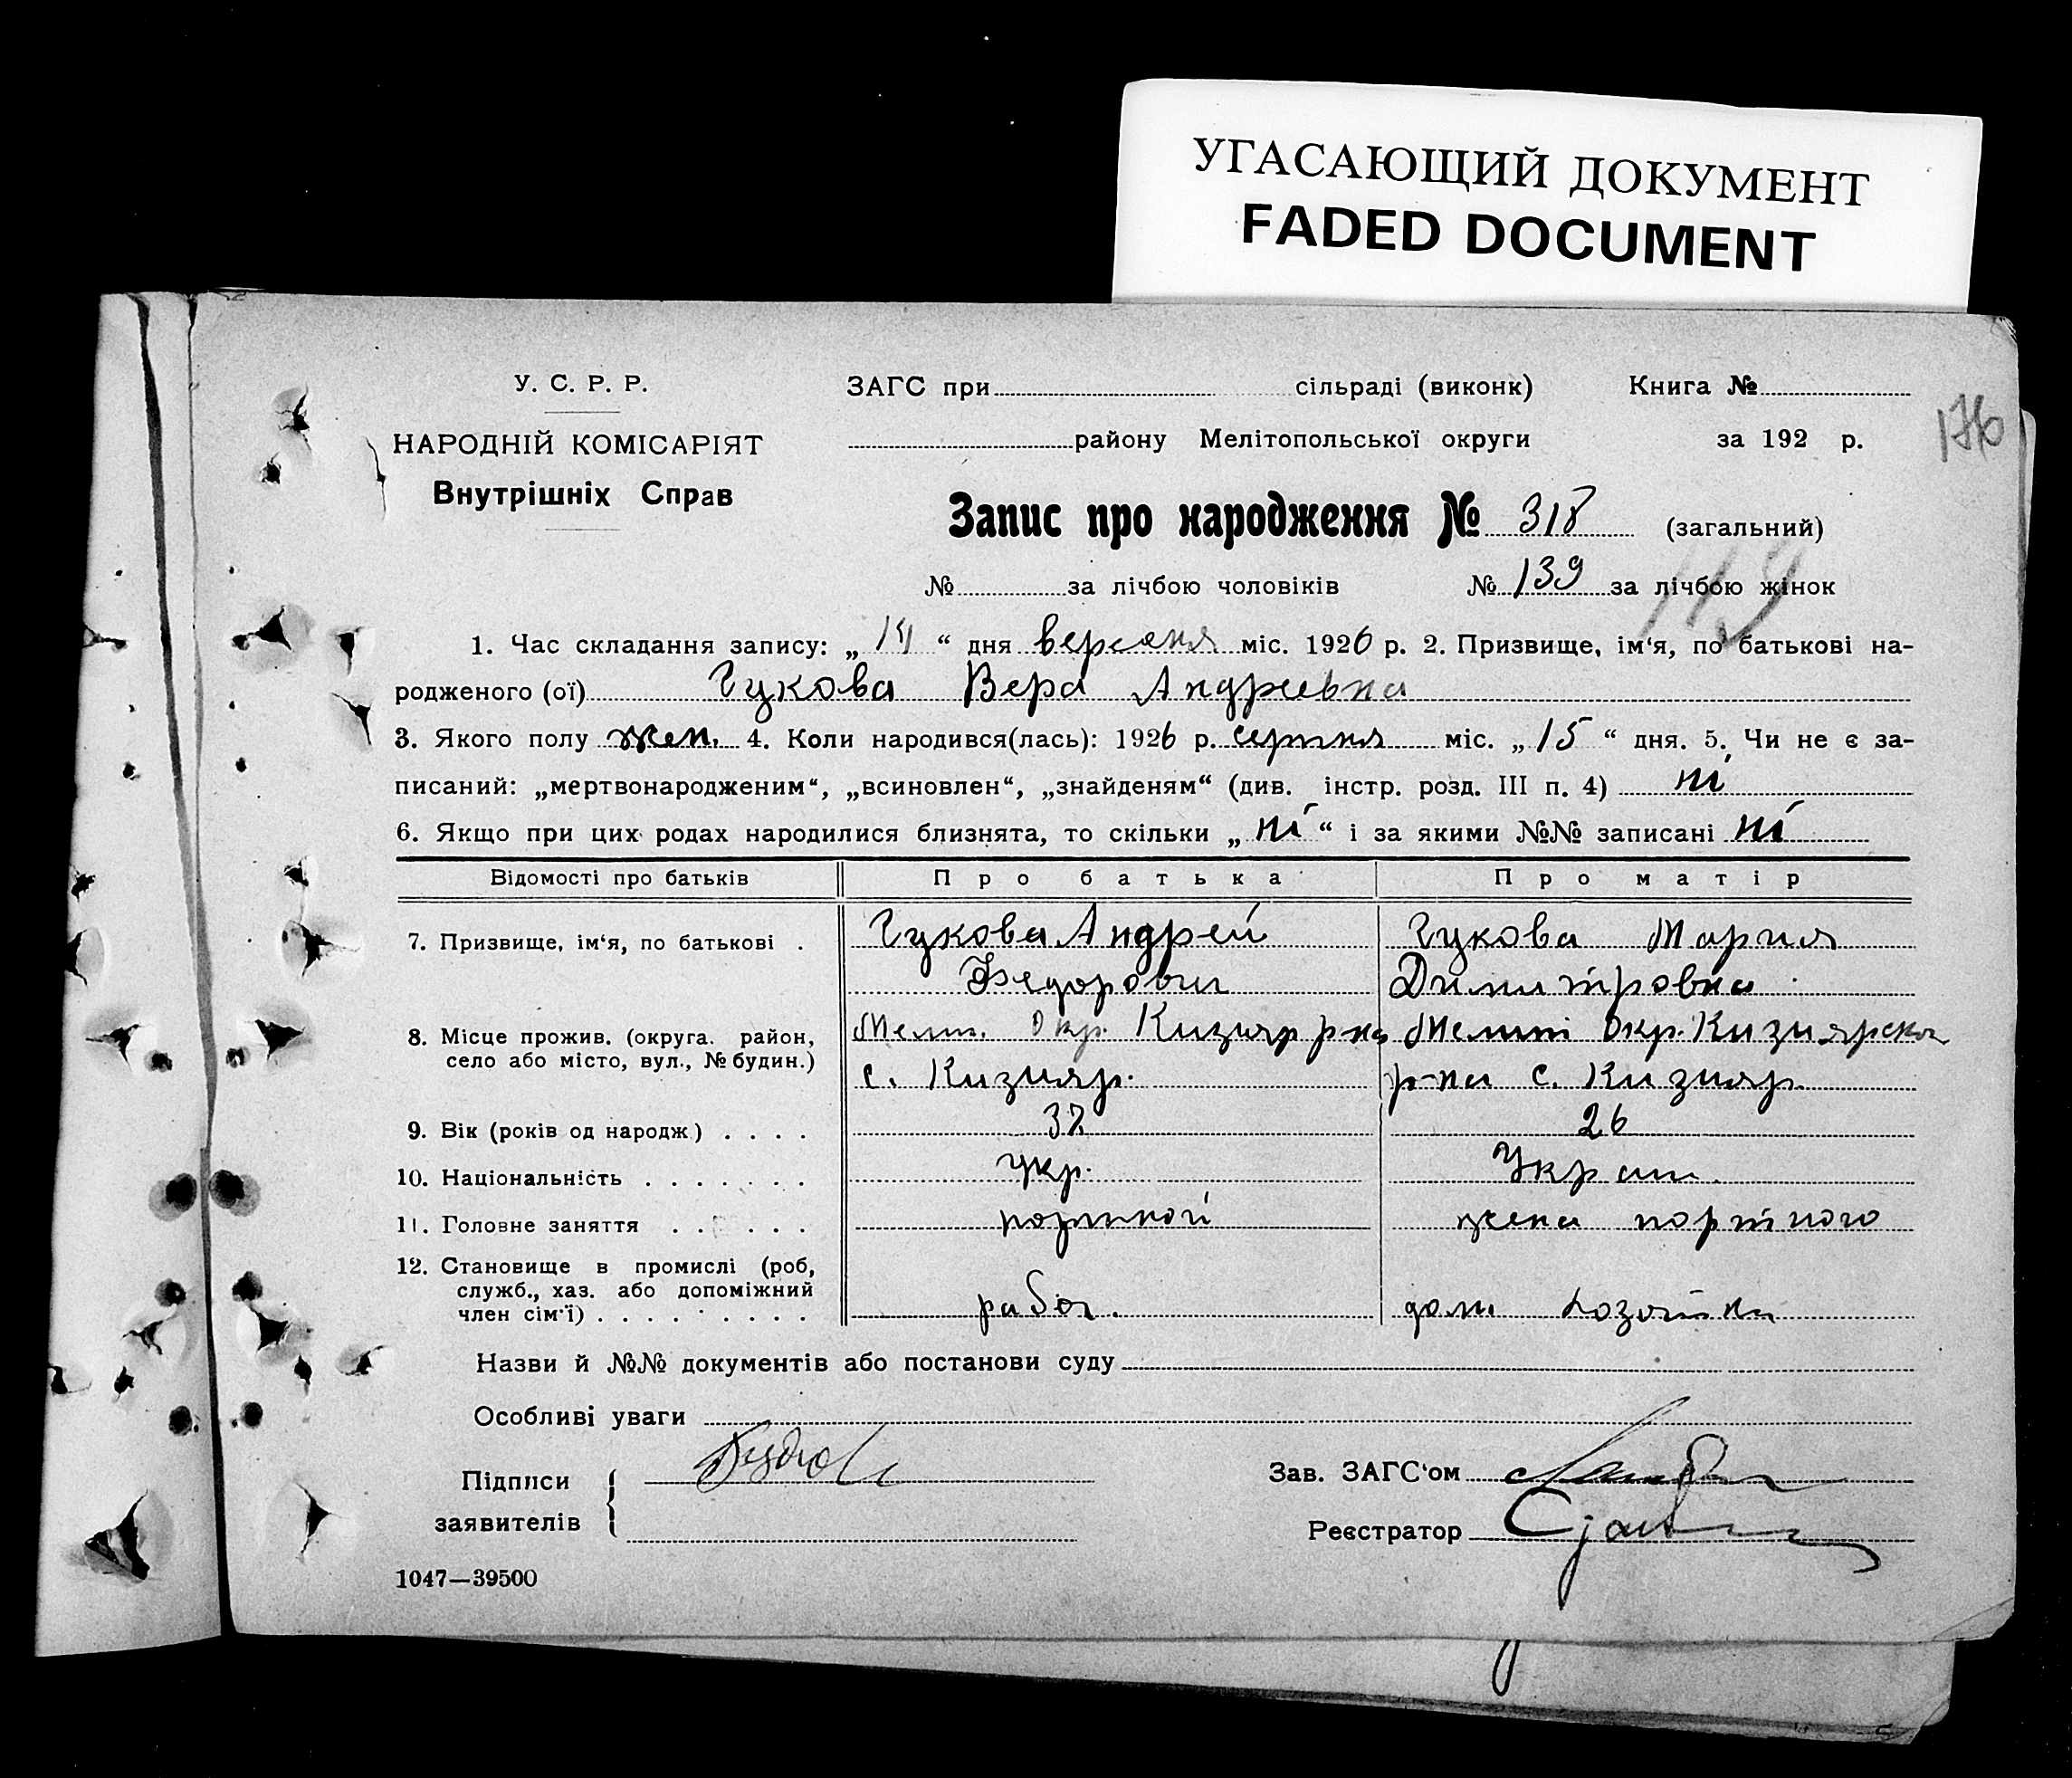 УГАСАЮЩИЙ ДОКУМЕНТ
FADED DOCUMENT
176
У. С. Р. Р.
НАРОДНІЙ КОМІСАРІЯТ
Внутрішніх Справ
ЗАГС при сільраді (виконк) Книга №
району Мелітопольської округи за 192 р.
Запис про народження № 318 (загальний)
№ за лічбою чоловіків № 139 за лічбою жінок
1. Час складання запису: „14“ дня вересня міс. 1926 р. 2. Призвище, ім‘я, по батькові на-
родженого (ої) Гукова Вера Андреевна
3. Якого полу жен. 4. Коли народився(лась): 1926 р. серпня міс. „15“ дня. 5. Чи не є за-
писаний: „мертвонародженим“, „всиновлен“, „знайденям“ (див. інстр. розд. III п. 4) ні
6. Якщо при цих родах народилися близнята, то скільки „ні“ і за якими №№ записані ні
Відомості про батьків Про батька Про матір
7. Призвище, ім‘я, по батькові . Гукова Андрей Гукова Мария
Федорович Димитровна
8. Місце прожив. (округа. район, Мелит. Окр. Кизияр р-на Мелит Окр. Кизиярска
село або місто, вул., № будин.) с. Кизияр. р-на с. Кизияр.
9. Вік (років од народж) . . . . 32 26
10. Національність . . . . . . . укр. Украин.
11. Головне заняття . . . . . . портной жена портного
12. Становище в промислі (роб,
служб., хаз. або допоміжний
член сім‘ї) . . . . . . . . рабоч. дом. хозяйка
Назви й №№ документів або постанови суду
Особливі уваги
Підписи
заявителів
Зав. ЗАГС‘ом
Реєстратор
1047—39500